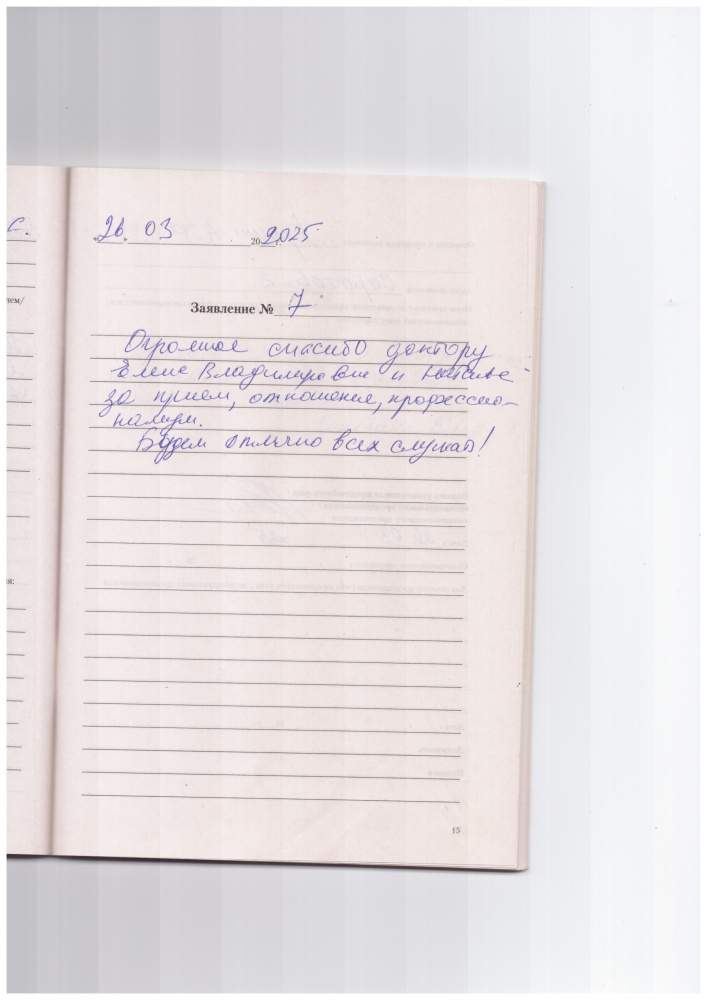 с.
26. 03 20 2025
чем/
Заявление № 7
Огромное спасибо доктору
Елене Владимировне и Наталье
за прием, отношение, профессио-
нализм.
Будем отлично всех слушать!
ия:
15